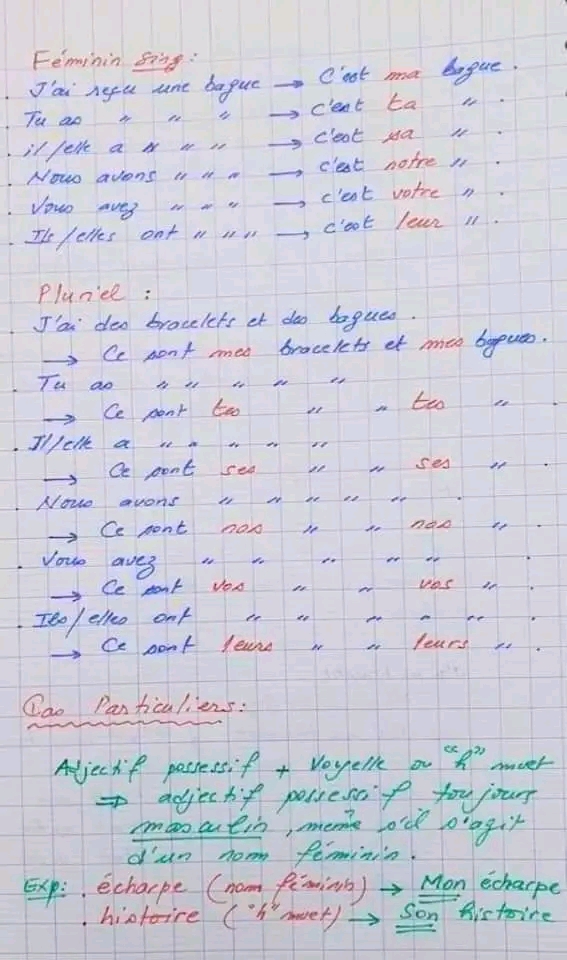 Féminin Sing:
. J'ai reçu une bague → C'est ma bague.
. Tu as " " " → c'est ta ".
. il/elle a " " " → c'est sa ".
. Nous avons " " " → c'est notre ".
. Vous avez " " " → c'est votre ".
. Ils/elles ont " " " → c'est leur ".
Pluriel :
. J'ai des bracelets et des bagues.
→ Ce sont mes bracelets et mes bagues.
. Tu as " " " " "
→ Ce sont tes " " tes " .
. Il/elle a " " " " "
→ Ce sont ses " " ses " .
. Nous avons " " " " " .
→ Ce sont nos " " nos " .
. Vous avez " " " " "
→ Ce sont vos " " vos " .
. Ils/elles ont " " " " "
→ Ce sont leurs " " leurs " .
Cas Particuliers:
Adjectif possessif + Voyelle ou "h" muet
⇒ adjectif possessif toujours
masculin, même s'il s'agit
d'un nom féminin.
Exp: . écharpe (nom féminin) → Mon écharpe
. histoire ("h" muet) → Son histoire